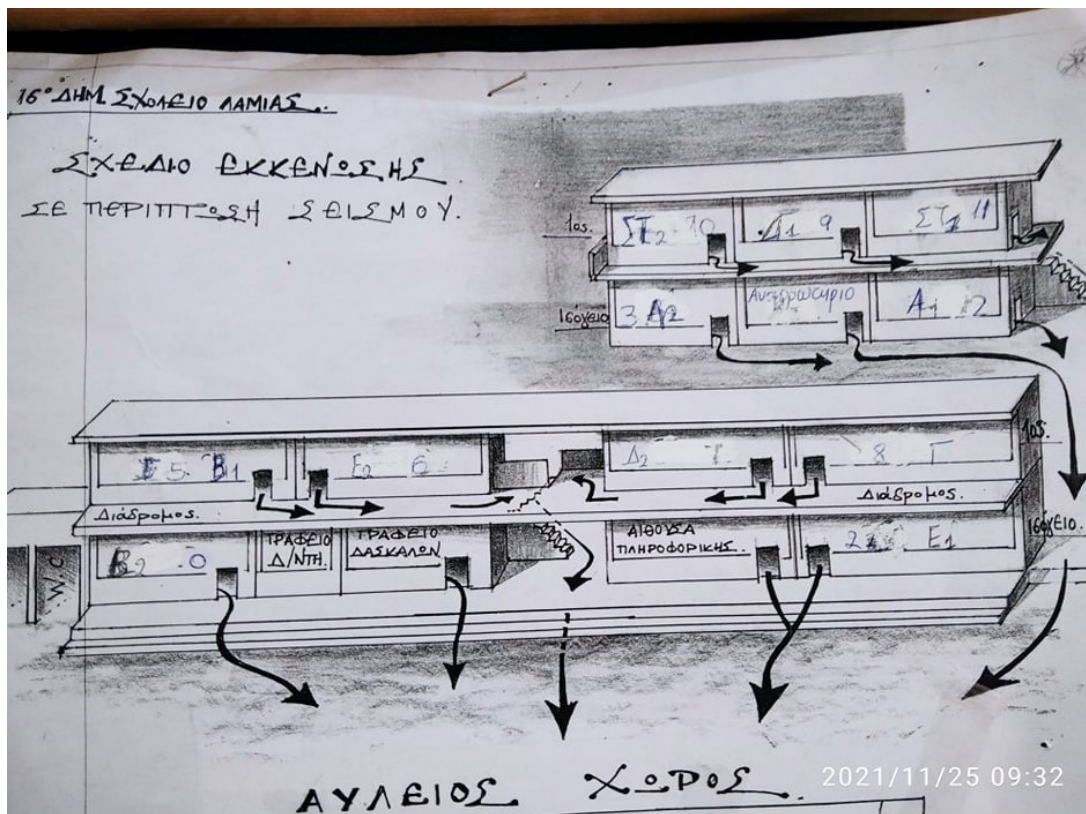 16ο ΔΗΜ. ΣΧΟΛΕΙΟ ΛΑΜΙΑΣ.
ΣΧΕΔΙΟ ΕΚΚΕΝΩΣΗΣ
ΣΕ ΠΕΡΙΠΤΩΣΗ ΣΕΙΣΜΟΥ.
1ος. ΣΤ2 10 9 ΣΤ 11
Ισόγειο 3 Α2 Α1 2
5 Β1 Ε2 6 Δ2 8 Γ 1ος.
Διάδρομος. Διάδρομος.
W.C. Β2 0 ΓΡΑΦΕΙΟ Δ/ΝΤΗ. ΓΡΑΦΕΙΟ ΔΑΣΚΑΛΩΝ ΑΙΘΟΥΣΑ ΠΛΗΡΟΦΟΡΙΚΗΣ. Ε1 Ισόγειο.
ΑΥΛΕΙΟΣ ΧΩΡΟΣ.
2021/11/25 09:32